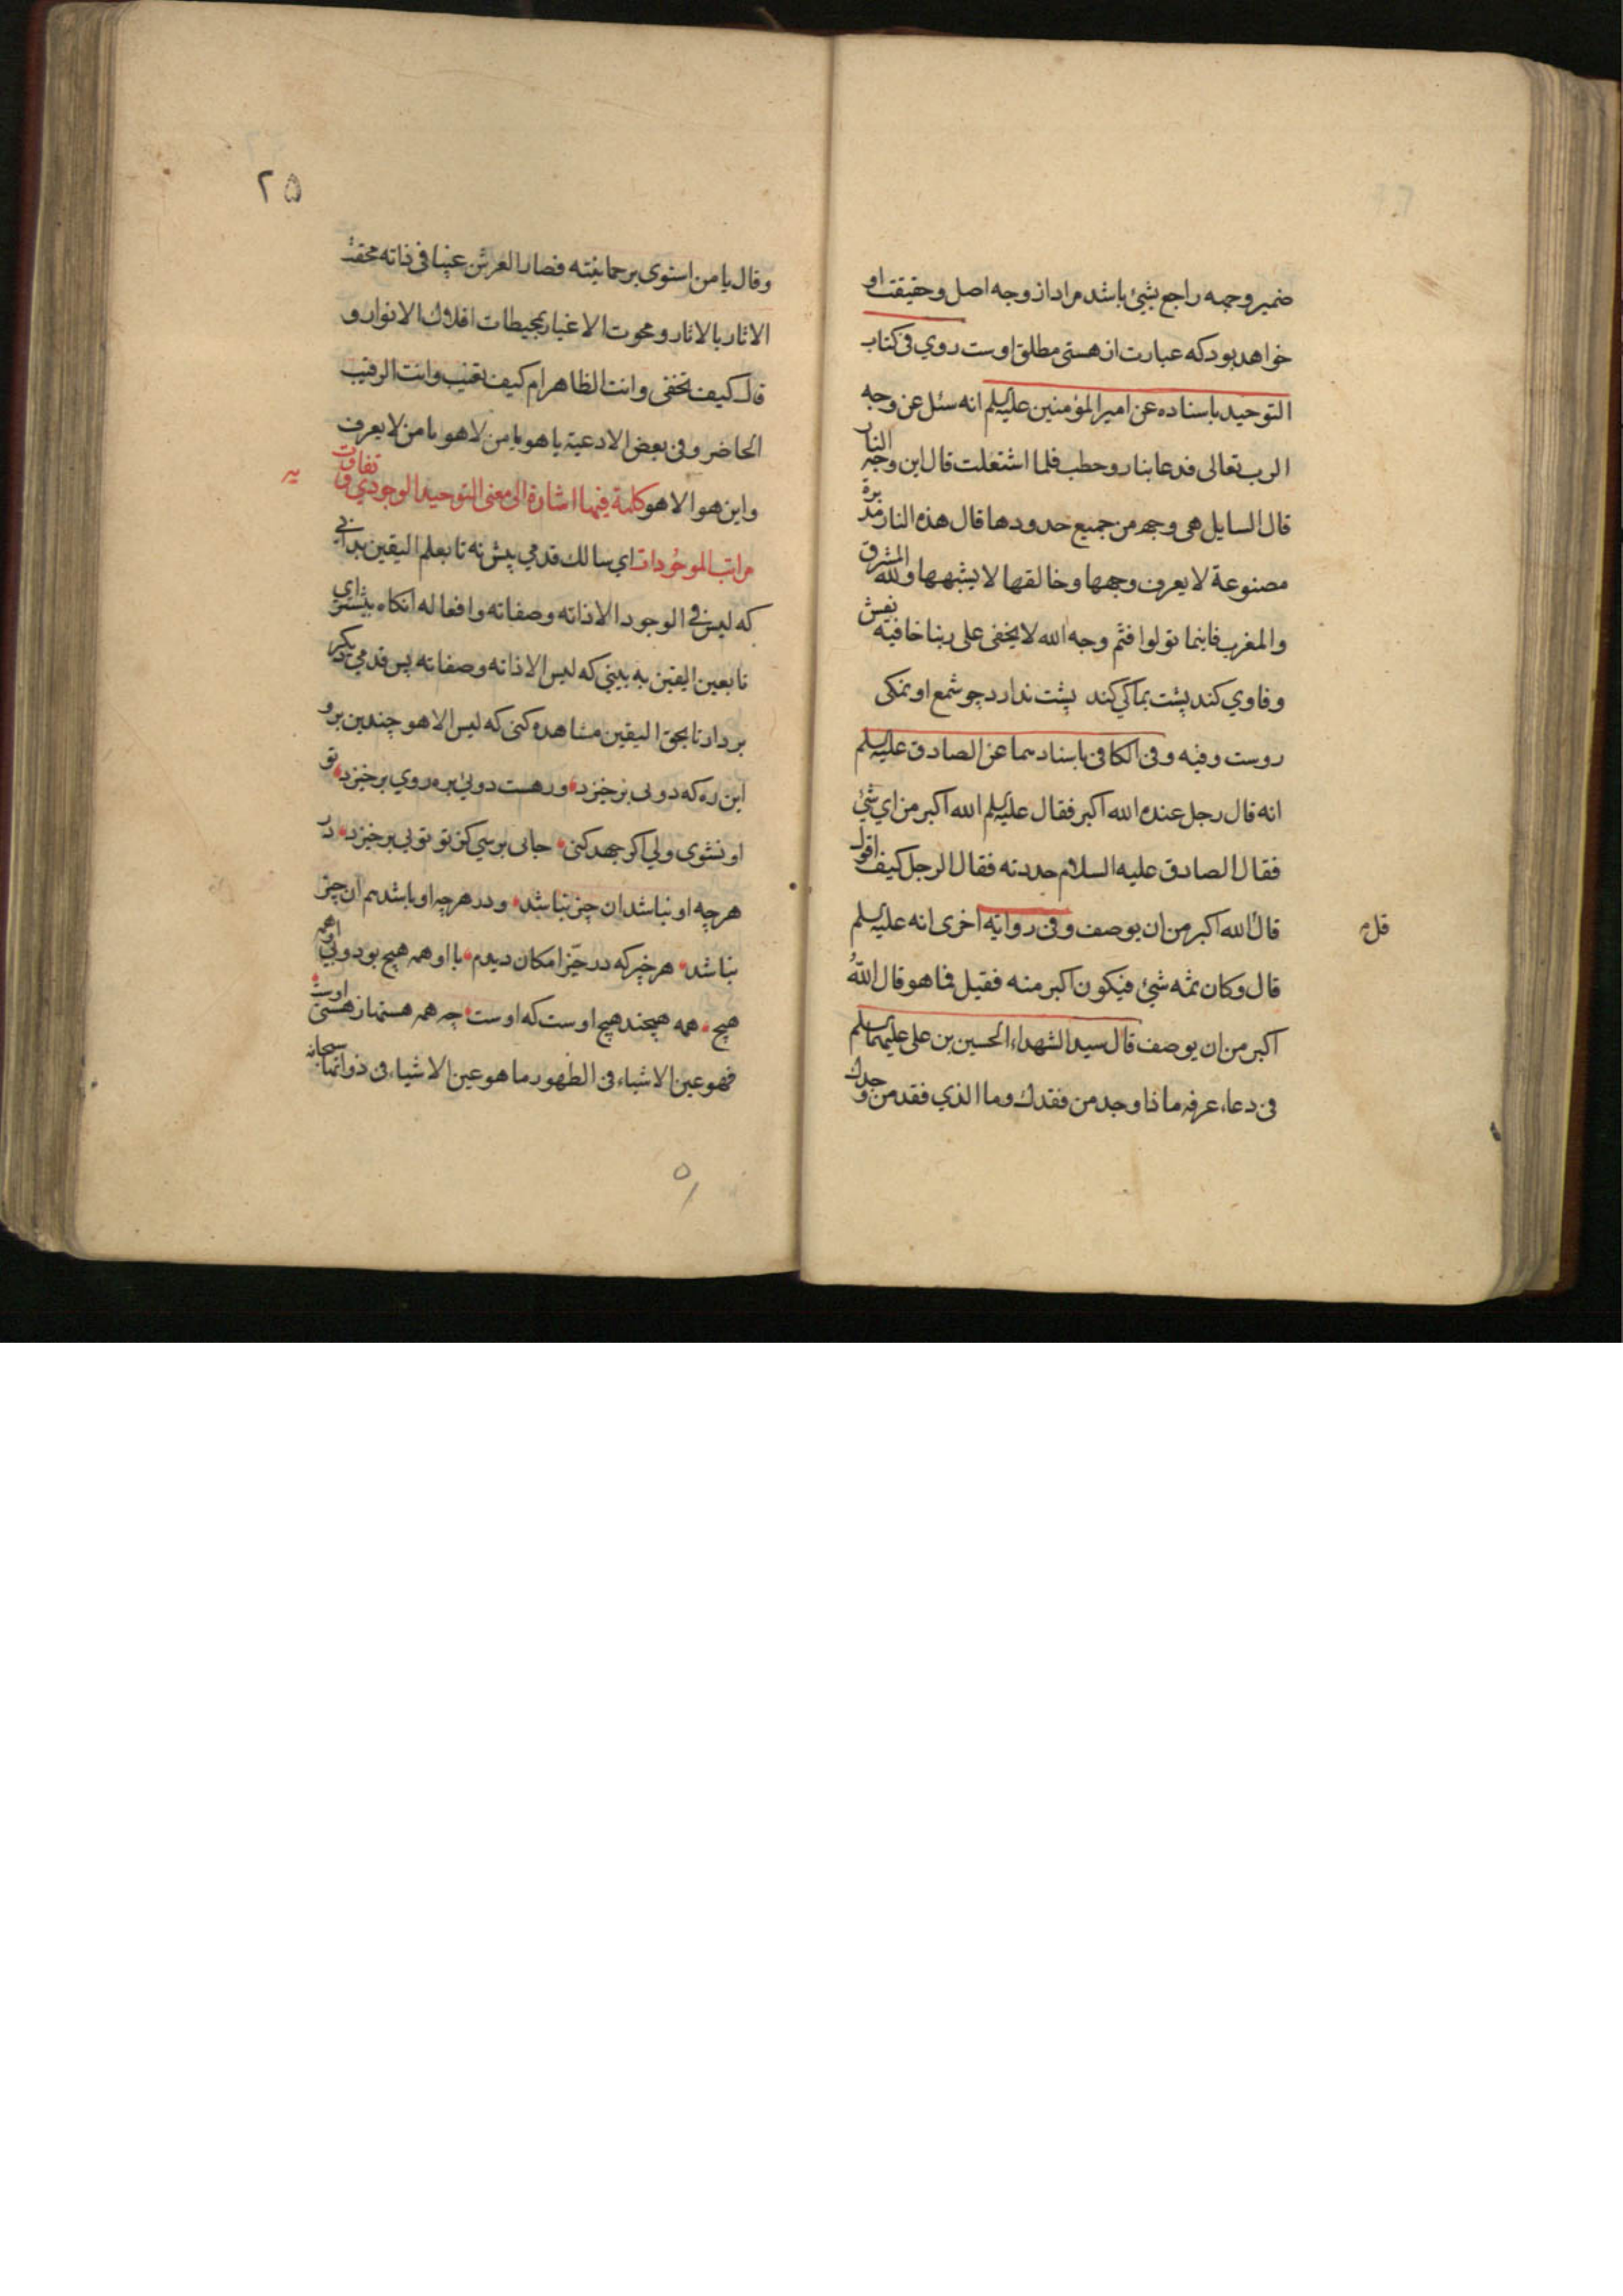 ضمیر وجهه راجع بشیئ باشد مراد از وجه اصل و حقیقت او
خواهد بود که عبارت از هستی مطلق اوست روي فی کتاب
التوحید باسناده عن امیر المؤمنین علیه السلم انه سئل عن وجه
الرب تعالی فدعا بنار وحطب فلما اشتعلت قال این وجه النار
قال السایل هی وجه من جمیع حدودها قال هذه النار مدبرة
مصنوعة لا یعرف وجهها وخالقها لا یشبهها ولله المشرق
والمغرب فاینما تولوا فثم وجه الله لا یخفی علی ربنا خافیه
وفاوي کند پشت بماکي کند پشت ندارد چو شمع او نمکی
روست وفیه وفی الکافی باسنادهما عن الصادق علیه السلم
انه قال رجل عنده الله اکبر فقال علیه السلم الله اکبر من اي شئ
فقال الصادق علیه السلام حددته فقال الرجل کیف اقول
قال الله اکبر من ان یوصف وفی روایة اخری انه علیه السلم
قل م
قال وکان ثمه شئ فیکون اکبر منه فقیل فما هو قال الله
اکبر من ان یوصف قال سید الشهداء الحسین بن علی علیهما السلم
فی دعاء عرفه ماذا وجد من فقدك وما الذي فقد من وجدك
۲۵
وقال یا من استوی برحمانیته فصار العرش غیبا فی ذاته محقت
الاثار بالاثار ومحوت الاغیار بمحیطات افلاك الانوار و
قال کیف تخفی وانت الظاهر ام کیف تغیب وانت الرقیب
الحاضر وفی بعض الادعیة یا هو یا من لا هو یا من لا یعرف
واین هو الا هو کلمة فیها اشارة الی معنی التوحید الوجودي و تفاوت
یه
مراتب الموجودات اي سالك قدمي پیش نه تا بعلم الیقین بدانی
که لیس فی الوجود الا ذاته وصفاته وافعاله انکاه پیشتر اي
تا بعین الیقین به بینی که لیس الا ذاته وصفاته پس قدمی دیکر
بردار تا بحق الیقین مشاهده کنی که لیس الا هو چندین برو
این ره که دویی برخیزد ور هست دویئ بره روي برخیزد تو
او نشوی ولي اکر جهد کنی جائی برسي کز تو تویی برخیزد در
هر چه او نباشد ان چیز نباشد و در هر چه او باشد هم ان چیز
نباشد هر چیز که در حیز امکان دیدم با او همه هیچ بود و بی او همه
هیچ همه هیچند هیچ اوست که اوست چه همه هستها ز هستی اوست
فهو عین الاشیاء فی الظهور ما هو عین الاشیاء فی ذواتها سبحانه